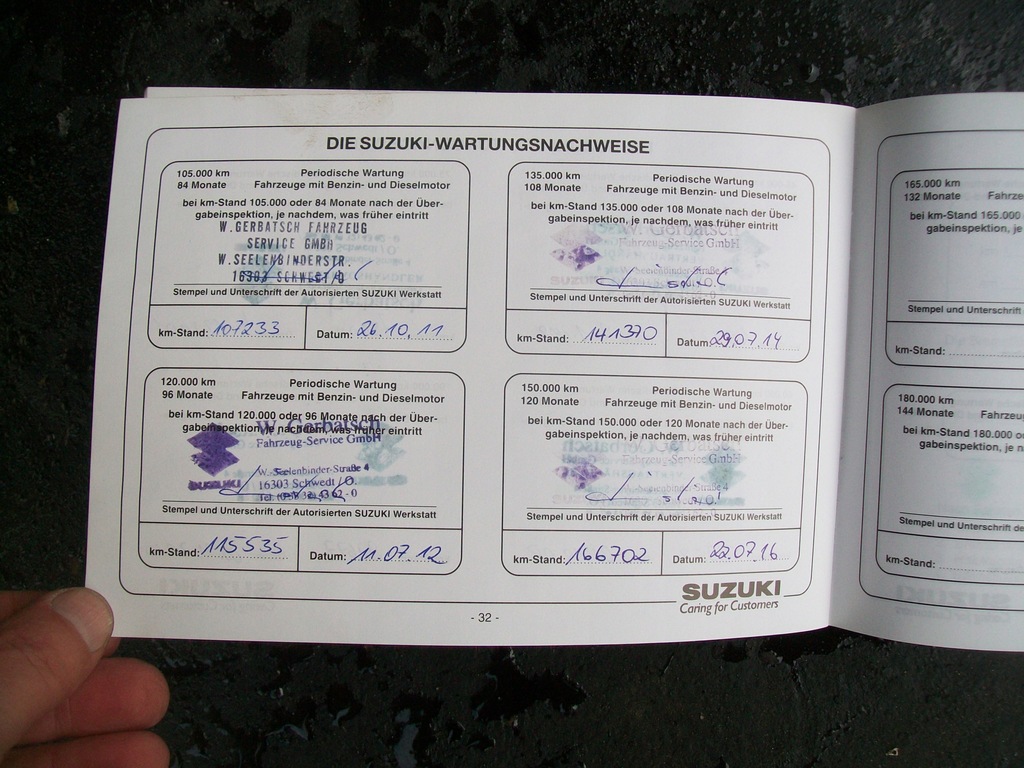 DIE SUZUKI-WARTUNGSNACHWEISE
105.000 km Periodische Wartung
84 Monate Fahrzeuge mit Benzin- und Dieselmotor
bei km-Stand 105.000 oder 84 Monate nach der Über-
gabeinspektion, je nachdem, was früher eintritt
W.GERBATSCH FAHRZEUG
SERVICE GMBH
W.SEELENBINDERSTR.
16303 SCHWEDT/O
Stempel und Unterschrift der Autorisierten SUZUKI Werkstatt
km-Stand: 107233 Datum: 26.10.11
120.000 km Periodische Wartung
96 Monate Fahrzeuge mit Benzin- und Dieselmotor
bei km-Stand 120.000 oder 96 Monate nach der Über-
gabeinspektion, je nachdem, was früher eintritt
W. Gerbatsch
Fahrzeug-Service GmbH
W.-Seelenbinder-Straße 4
16303 Schwedt/O.
SUZUKI
Stempel und Unterschrift der Autorisierten SUZUKI Werkstatt
km-Stand: 115535 Datum: 11.07.12
135.000 km Periodische Wartung
108 Monate Fahrzeuge mit Benzin- und Dieselmotor
bei km-Stand 135.000 oder 108 Monate nach der Über-
gabeinspektion, je nachdem, was früher eintritt
W. Gerbatsch
Fahrzeug-Service GmbH
W.-Seelenbinder-Straße 4
Stempel und Unterschrift der Autorisierten SUZUKI Werkstatt
km-Stand: 141370 Datum: 29.07.14
150.000 km Periodische Wartung
120 Monate Fahrzeuge mit Benzin- und Dieselmotor
bei km-Stand 150.000 oder 120 Monate nach der Über-
gabeinspektion, je nachdem, was früher eintritt
Fahrzeug-Service GmbH
Seelenbinder-Straße 4
Stempel und Unterschrift der Autorisierten SUZUKI Werkstatt
km-Stand: 166702 Datum: 22.07.16
SUZUKI
Caring for Customers
- 32 -
165.000 km
132 Monate Fahrze
bei km-Stand 165.000
gabeinspektion, je
Stempel und Unterschrift
km-Stand:
180.000 km
144 Monate Fahrzeu
bei km-Stand 180.000
gabeinspektion, je n
Stempel und Unterschrift de
km-Stand: